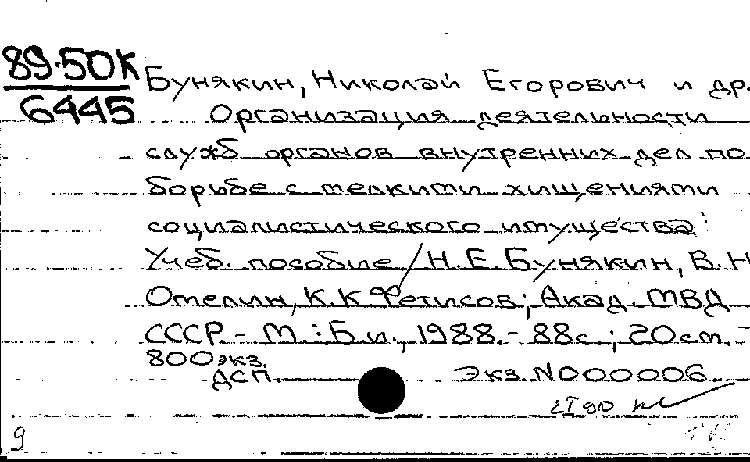 89-50К
6445
Бунякин, Николай Егорович и др.
Организация деятельности
служб органов внутренних дел по
борьбе с мелкими хищениями
социалистического имущества:
Учеб. пособие / Н.Е.Бунякин, В.Н
Омелин, К.К Фетисов; Акад. МВД
СССР - М.: Б.и., 1988. - 88с.; 20см. -
800 экз.
ДСП. Экз. N000006
9